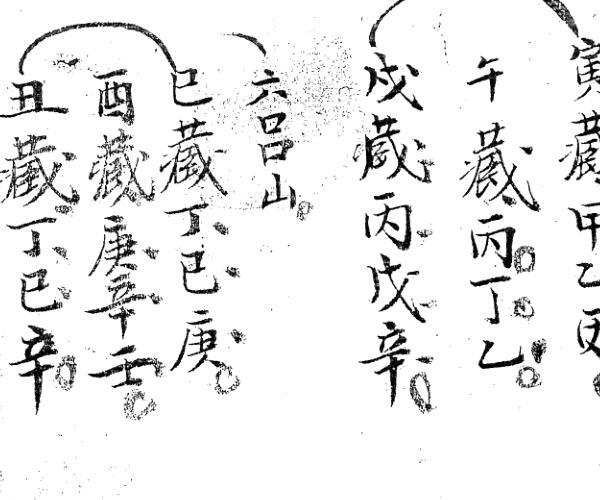 寅藏甲乙丙
午藏丙丁乙
戍藏丙戊辛
六呂山
巳藏丁巳庚
酉藏庚辛壬
丑藏丁巳辛